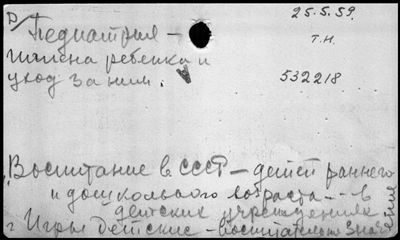 Педиатрия –
гигиена ребенка и
уход за ним.
25.5.59.
Т.Н.
532218
Воспитание в СССР – детей раннего
и дошкольного возраста – в
детских учреждениях
Игры детские – воспитательн значение